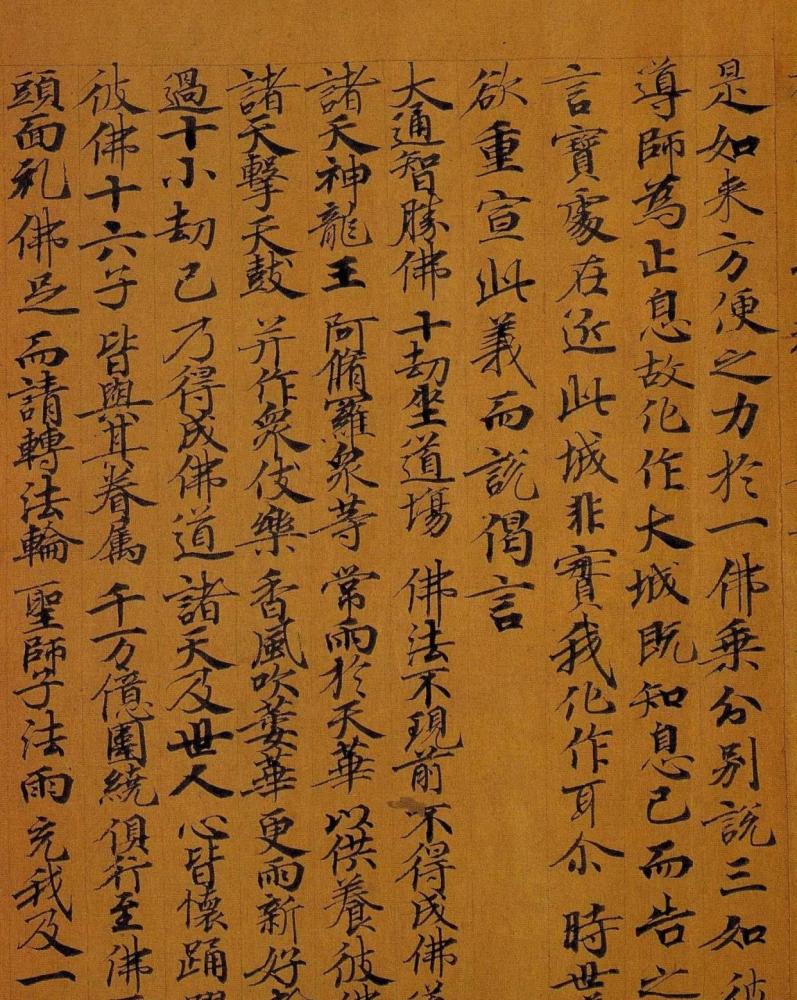 是如来方便之力於一佛乗分別說三如彼
導師為止息故化作大城既知息已而告之
言寶處在近此城非實我化作耳尒時世
欲重宣此義而說偈言
大通智勝佛 十劫坐道場 佛法不現前 不得成佛道
諸天神龍王 阿脩羅衆等 常雨於天華 以供養彼佛
諸天擊天鼓 并作衆伎樂 香風吹萎華 更雨新好
過十小劫已 乃得成佛道 諸天及世人 心皆懷踊
彼佛十六子 皆與其眷属 千万億圍繞 俱行至佛
頭面礼佛足 而請轉法輪 聖師子法雨 充我及一